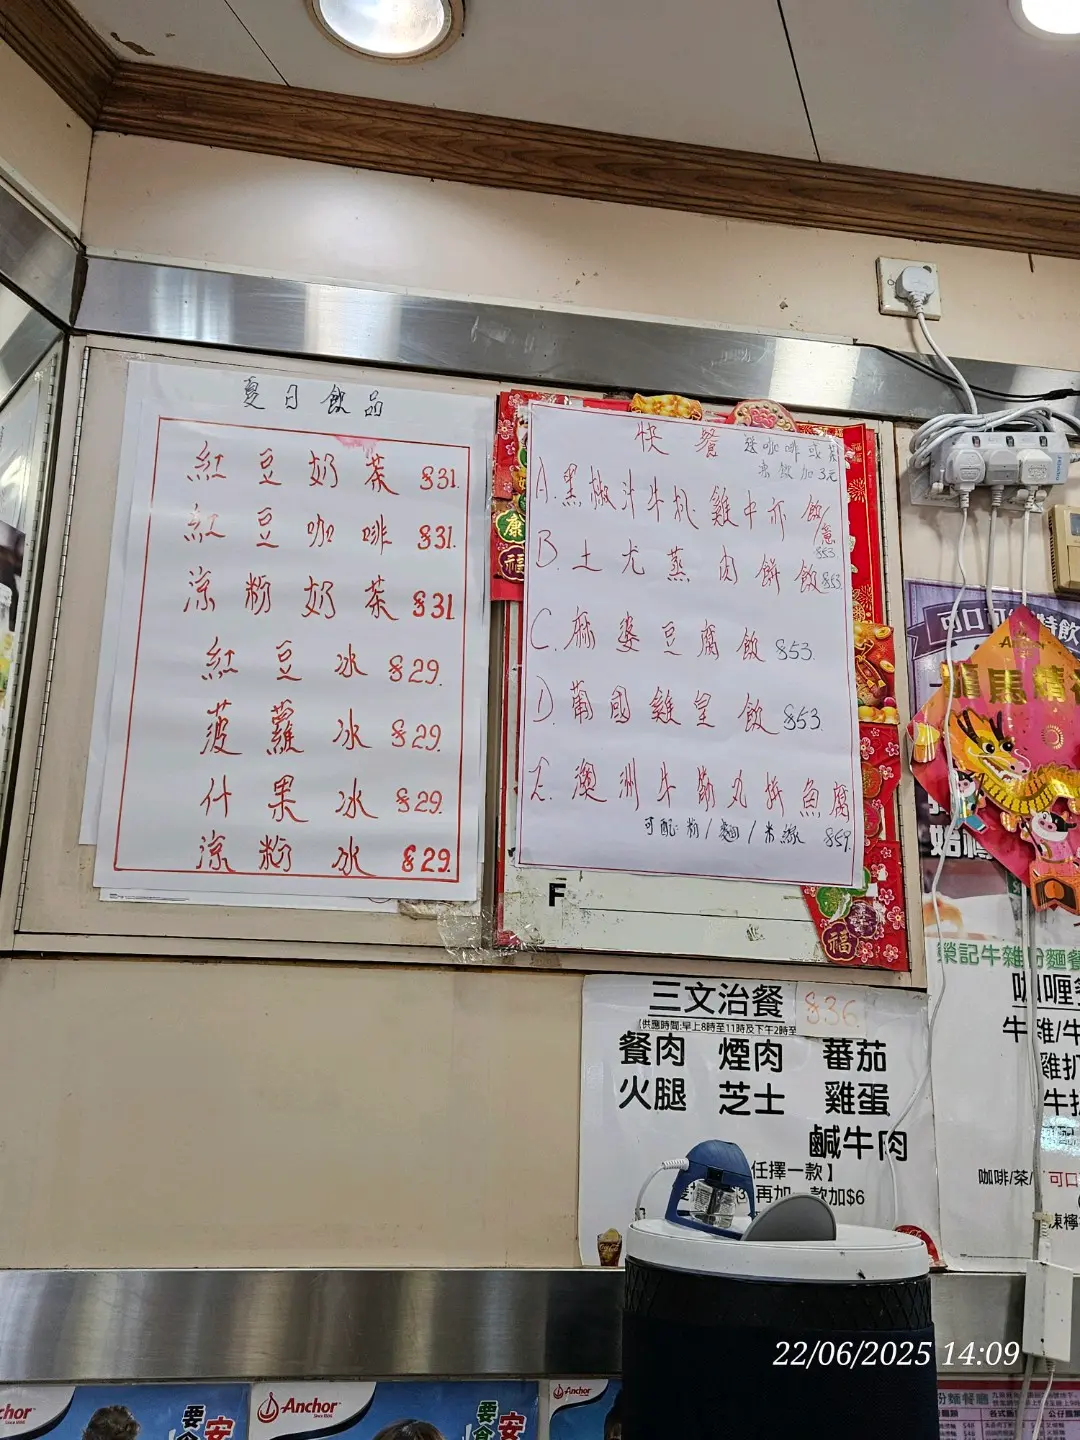 夏日飲品
紅豆奶茶 $31.
紅豆咖啡 $31.
涼粉奶茶 $31
紅豆冰 $29.
菠蘿冰 $29.
什果冰 $29.
涼粉冰 $29.
快餐 送咖啡或茶
凍飲加3元
A.黑椒汁牛扒雞中亦飯/意
$53
B.土尤蒸肉餅飯 $53
C.麻婆豆腐飯 $53.
D.葡國雞皇飯 $53
E.澳洲牛筋丸拼魚腐
可配:粉/麵/米線 $59.
F
三文治餐 $36
(供應時間:早上8時至11時及下午2時至
餐肉 煙肉 蕃茄
火腿 芝士 雞蛋
鹹牛肉
任擇一款】
再加一款加$6
可口
特飲
龍馬精
榮記牛雜粉麵餐
咖喱
牛雜/牛
雞扒
咖啡/茶/
可口
凍檸
福
康
Anchor
Since 1886
Anchor
要 安
粉麵餐廳
22/06/2025 14:09